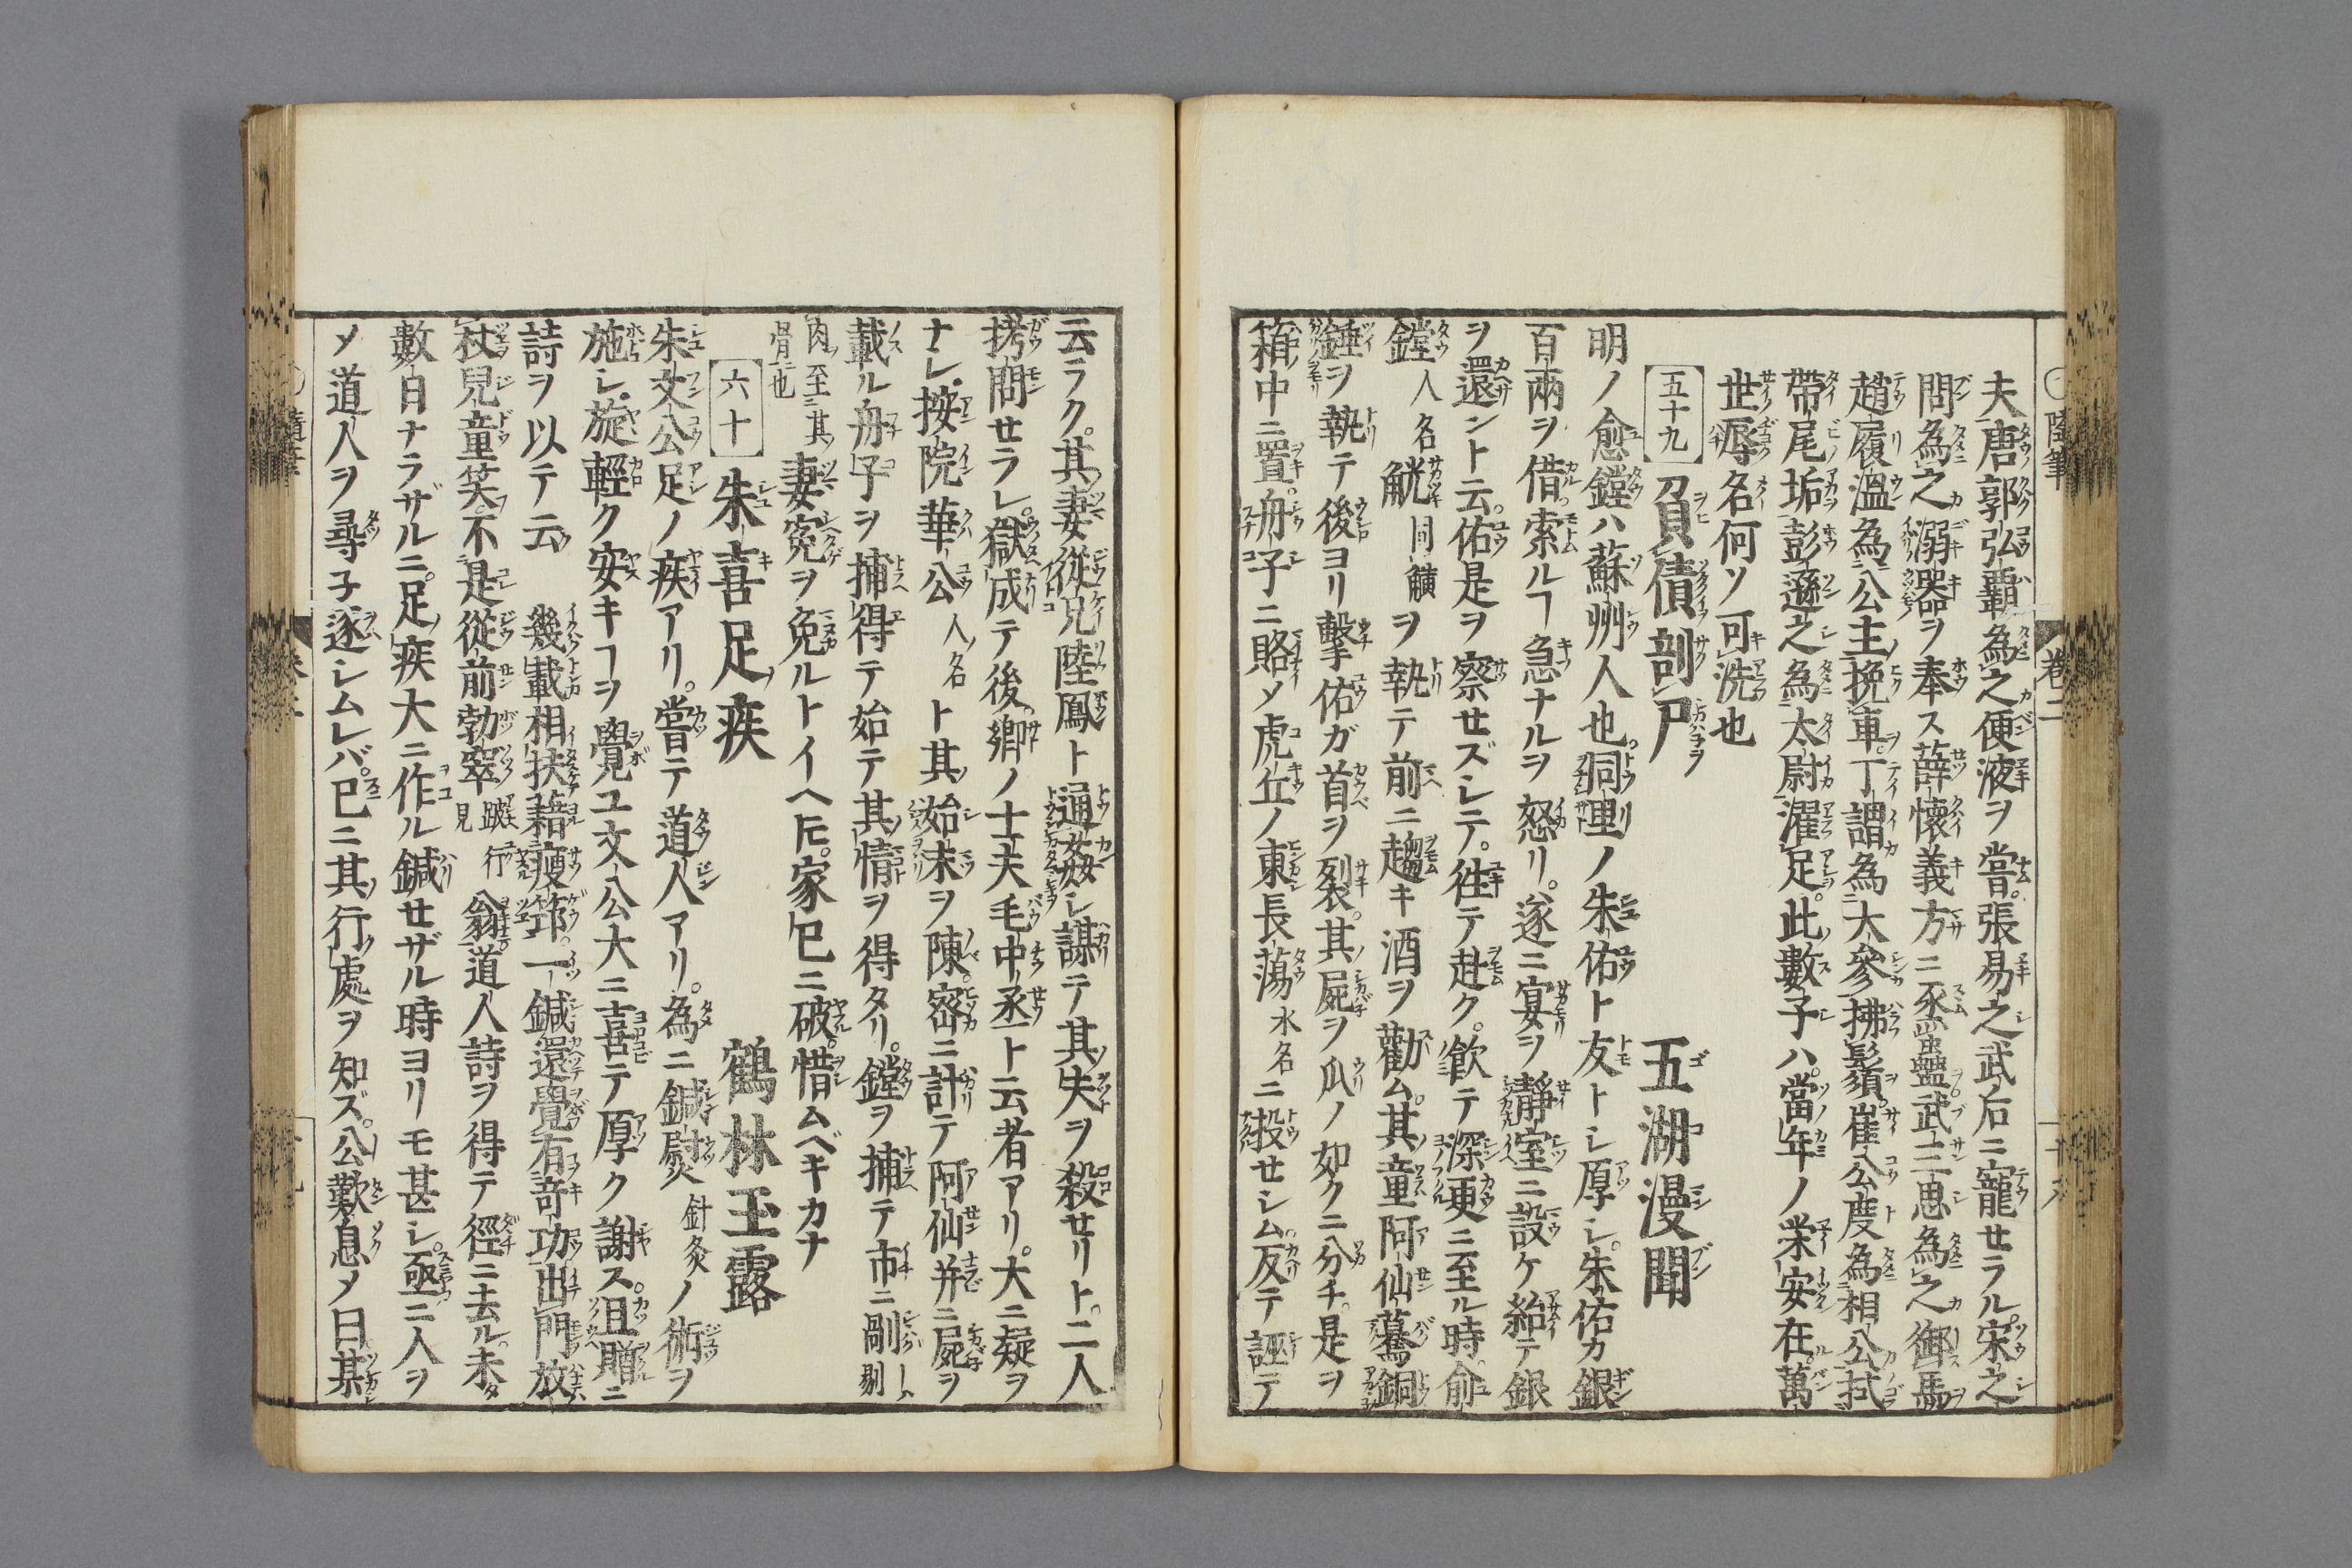 夫唐郭弘覇為之便液ヲ嘗張易之武后ニ寵セラル宋之
問為之溺器ヲ奉ス薛懷義方ニ承蠱武三思為之御馬
趙履溫為公主挽車丁謂為大參拂鬚崔公度為相公拭
帶尾垢彭遜之為太尉濯足此數子ハ當年ノ栄安在萬
世辱名何ソ可洗也
五十九 負債剖尸 五湖漫聞
明ノ愈鏜ハ蘇州人也同里ノ朱佑ト友トレ厚レ朱佑カ銀
百兩ヲ借索ルヿ急ナルヲ怒リ遂ニ宴ヲ靜室ニ設ケ紿テ銀
ヲ還ント云佑是ヲ察セズレテ徃テ赴ク飲テ深更ニ至ル時俞
鏜人名觥同觵ヲ執テ前ニ趨キ酒ヲ勸ム其童阿仙驀銅
錘ヲ執テ後ヨリ擊佑ガ首ヲ裂其屍ヲ瓜ノ如クニ分チ是ヲ
箱中ニ置舟子ニ賂メ虎丘ノ東長蕩水名ニ投セシム反テ誣テ
云ラク其妻從兄陸鳳ト通姦レ謀テ其夫ヲ殺セリト二人
拷問セラレ獄成テ後鄉ノ士夫毛中丞ト云者アリ大ニ疑ヲ
ナレ按院華公人名ト其始末ヲ陳密ニ計テ阿仙并ニ屍ヲ
載ル舟子ヲ捕得テ始テ其情ヲ得タリ鏜ヲ捕テ市ニ剮剔
肉至其骨也妻寃ヲ免ルトイヘ𪜈家已ニ破惜ムベキカナ
六十 朱喜足疾 鶴林玉露
朱文公足ノ疾アリ嘗テ道人アリ為ニ鍼熨針灸ノ術ヲ
施レ旋輕ク安キヿヲ覺ユ文公大ニ喜テ厚ク謝ス且贈ニ
詩ヲ以テ云 幾載相扶藉瘦筇一鍼還覺有竒功出門放
杖兒童笑不是從前勃窣跛行見翁道人詩ヲ得テ徑ニ去ル未
數日ナラザルニ足疾大ニ作ル鍼セザル時ヨリモ甚レ亟ニ人ヲ
メ道人ヲ尋子逐シムレバ已ニ其行處ヲ知ズ公歎息メ曰某